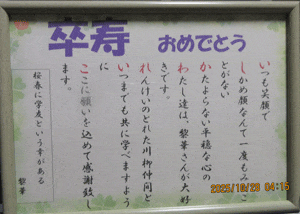 卒寿 おめでとう
いつも笑顔で
しかめ顔なんて一度もみたこ
とがない
かたよらない平穏な心の
わたし達は、黎華さんが大好
きです。
れんけいのとれた川柳仲間と
いつまでも共に学べますよう
に
ここに願いを込めて感謝致し
ます。
桜春に学友という幸がある
黎華
2025/10/20 04:15